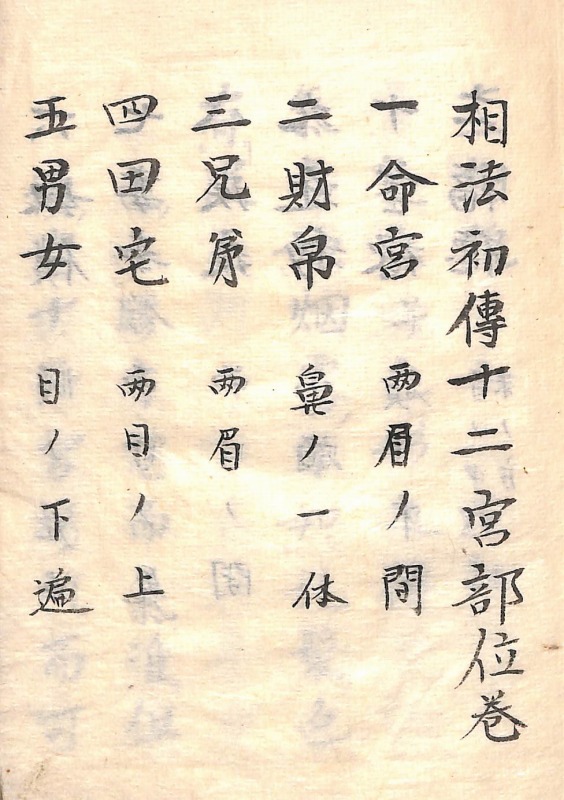 相法初傳十二宮部位巻
一命宮 両眉ノ間
二財帛 鼻ノ一体
三兄弟 両眉
四田宅 両目ノ上
五男女 目ノ下遍